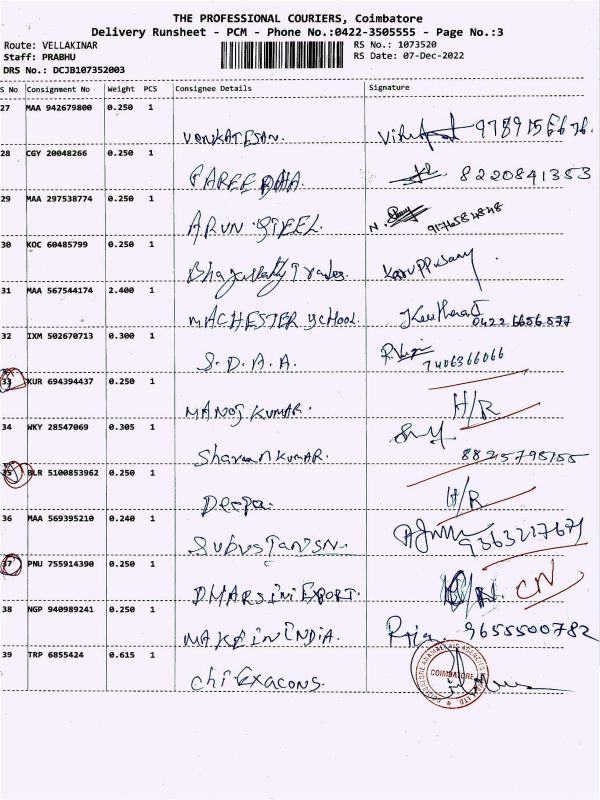 THE PROFESSIONAL COURIERS, Coimbatore
Delivery Runsheet - PCM - Phone No.:0422-3505555 - Page No.:3
Route: VELLAKINAR RS No.: 1073520
Staff: PRABHU RS Date: 07-Dec-2022
DRS No.: DCJB107352003
S No Consignment No Weight PCS Consignee Details Signature
27 MAA 942679800 0.250 1
VENKATESAN.
28 CGY 20048266 0.250 1
FAREEDHA 8220841353
29 MAA 297538774 0.250 1
ARUN STEEL. N. 9176584848
30 KOC 60485799 0.250 1
Traders. Karuppusamy
31 MAA 567544174 2.400 1
MACHESTER SCHOOL. 0422 6656577
32 IXM 502670713 0.300 1
S.D.A.A. 7406366066
33 KUR 694394437 0.250 1
MANOJ KUMAR. H/R
34 WKY 28547069 0.305 1
Sharan KUMAR. 8825795155
35 BLR 5100853962 0.250 1
Deepa. H/R
36 MAA 569395210 0.240 1
37 PNU 755914390 0.250 1
EXPORT. CN
38 NGP 940989241 0.250 1
MAKE IN INDIA. Raja. 9655500782
39 TRP 6855424 0.615 1
Chi Exacons. COIMBATORE